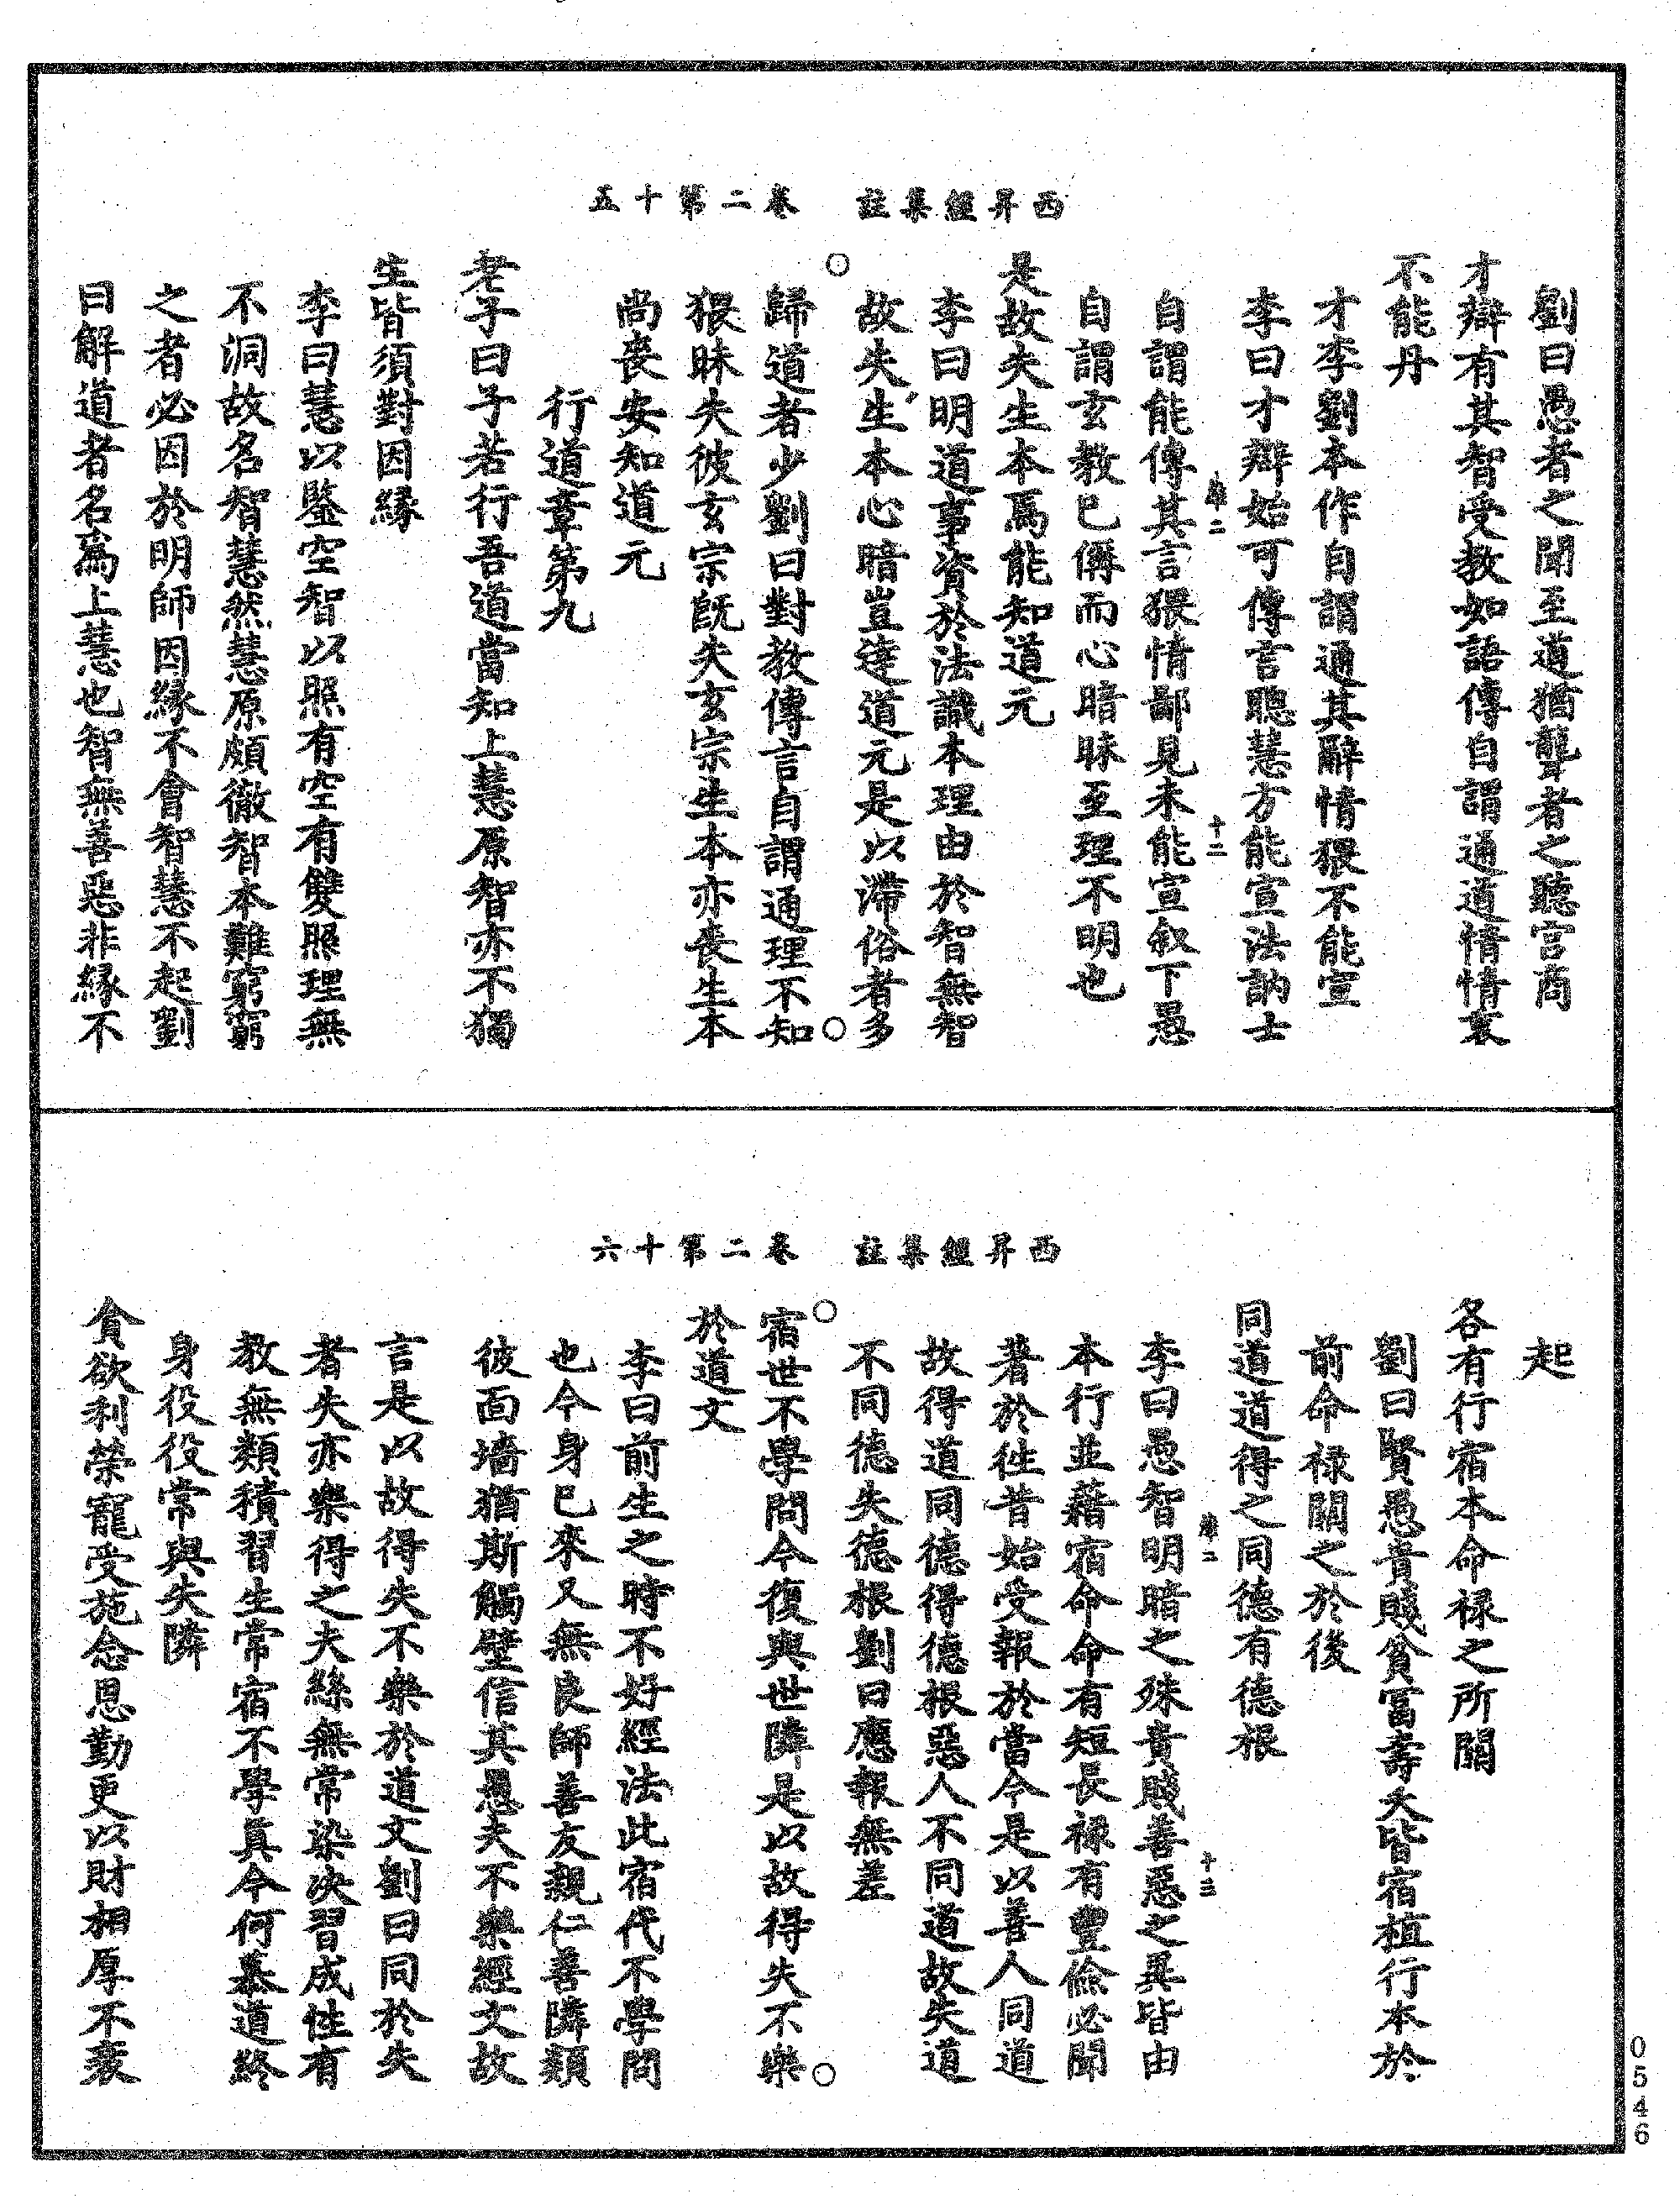 西昇經集註　卷二第十五
劉曰愚者之聞至道猶聾者之聽宮商
才辯有其智受教如語傳自謂通道情情衷
不能丹
才李劉本作自謂通其辭情猥不能宣
李曰才辯始可傳言聰慧方能宣法訥士
自謂能傳其言猥情鄙見未能宣叙下愚
自謂玄教已儕而心暗昧至理不明也
是故失生本焉能知道元
李曰明道事資於法識本理由於智無智
故失生本心暗豈達道元是以滯俗者多
歸道者少劉曰對教傳言自謂通理不知
猥昧失彼玄宗旣失玄宗生本亦喪生本
尚喪安知道元
行道章第九
老子曰子若行吾道當知上慧原智亦不獨
生皆須對因緣
李曰慧以鑒空智以照有空有雙照理無
不洞故名智慧然慧原頗徹智本難窮窮
之者必因於明師因緣不會智慧不起劉
曰解道者名爲上慧也智無善惡非緣不
維二
十二
西昇經集註　卷二第十六
起
各有行宿本命祿之所關
劉曰賢愚貴賤貧富壽夭皆宿植行本於
前命祿關之於後
同道道得之同德有德根
李曰愚智明暗之殊貴賤善惡之異皆由
本行並藉宿命命有短長祿有豐儉必聞
著於往昔始受報於當今是以善人同道
故得道同德得德根惡人不同道故失道
不同德失德根劉曰應報無差
宿世不學問今復與世隣是以故得失不樂
於道文
李曰前生之時不好經法此宿代不學問
也今身已來又無良師善友親仁善隣類
彼面墻猶斯觸壁信其愚夫不樂經文故
言是以故得失不樂於道文劉曰同於失
者失亦樂得之夫絲無常染決習成性有
教無類積習生常宿不學眞今何慕道終
身役役常與失隣
貪欲利榮寵受施念恩勤更以財相厚不衷
維二
十三
0546